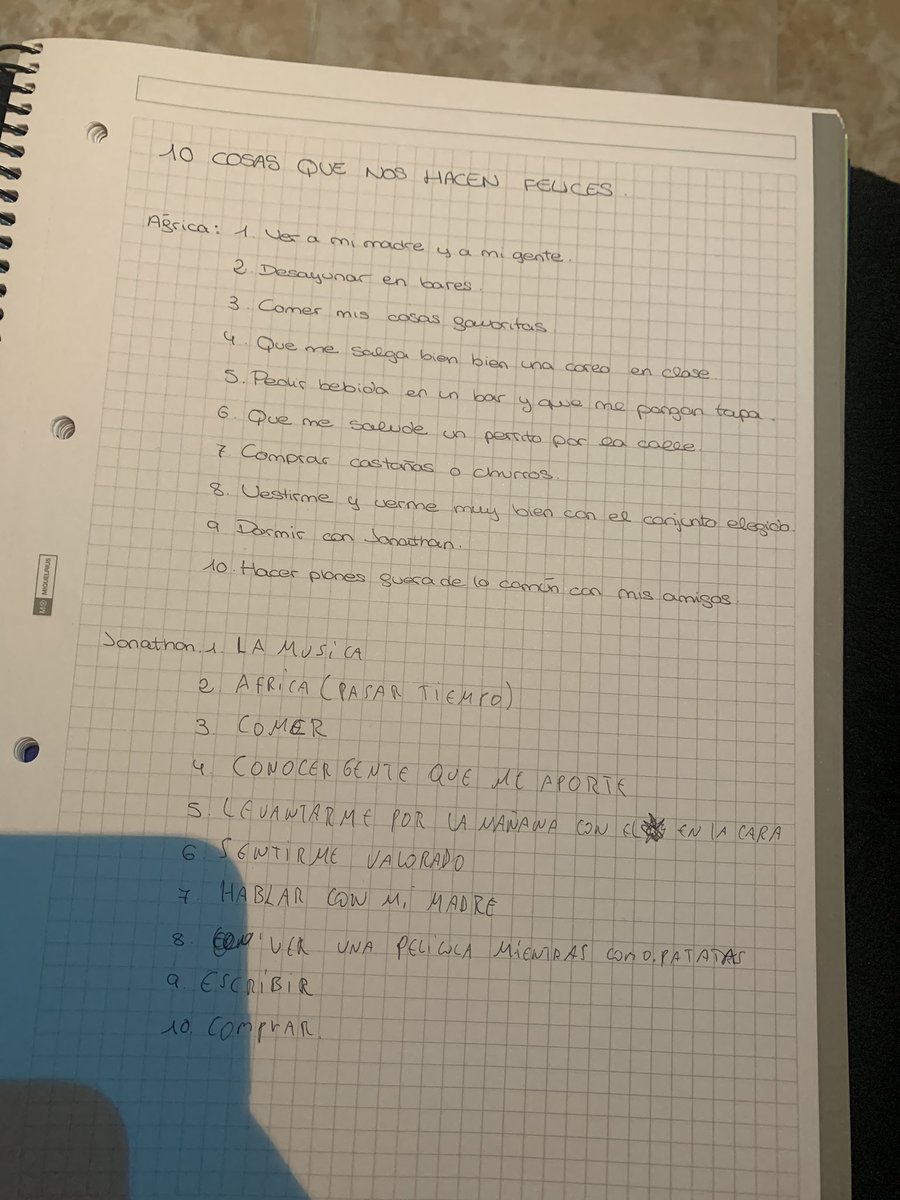 10 COSAS QUE NOS HACEN FELICES.
África: 1. Ver a mi madre y a mi gente.
2. Desayunar en bares.
3. Comer mis cosas favoritas
4. Que me salga bien bien una coreo en clase.
5. Pedir bebida en un bar y que me pongan tapa.
6. Que me salude un perrito por la calle.
7. Comprar castañas o churros.
8. Vestirme y verme muy bien con el conjunto elegido.
9. Dormir con Jonathan.
10. Hacer planes fuera de lo común con mis amigos.
MIQUELRIUS
Jonathan. 1. LA MUSICA
2. AFRICA (PASAR TIEMPO)
3. COMER
4. CONOCER GENTE QUE ME APORTE
5. LEVANTARME POR LA MAÑANA CON EL EN LA CARA
6 SENTIRME VALORADO
7. HABLAR CON Mi MADRE
8. VER UNA PELICULA MIENTRAS COMO PATATAS
9. ESCRIBIR
10. COMPRAR.